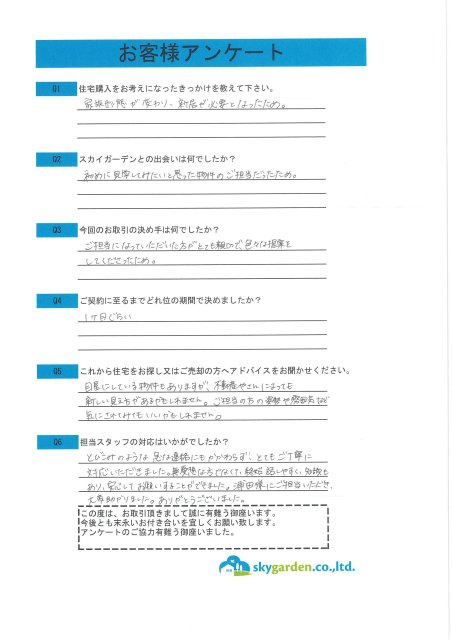 お客様アンケート
Q1 住宅購入をお考えになったきっかけを教えて下さい。
家族形態が変わり、新居が必要となったため。
Q2 スカイガーデンとの出会いは何でしたか？
初めに見学してみたいと思った物件のご担当だったため。
Q3 今回のお取引の決め手は何でしたか？
ご担当になっていただいた方がとても親切で、色々な提案を
してくださったため。
Q4 ご契約に至るまでどれ位の期間で決めましたか？
1ヶ月ぐらい
Q5 これから住宅をお探し又はご売却の方へアドバイスをお聞かせください。
目星にしている物件もありますが、不動産やさんによっても
新しい見え方があるかもしれません。ご担当の方の など
気にされてみてもいいかもしれません。
Q6 担当スタッフの対応はいかがでしたか？
とびこみのような急な連絡にもかかわらず、とてもご丁寧に
対応いただきました。 な方でなくて、終始話しやすく、知識も
あり、安心してお願いすることができました。 様にご担当いただき、
大変助かりました。ありがとうございました。
この度は、お取引頂きまして誠に有難う御座います。
今後とも末永いお付き合いを宜しくお願い致します。
アンケートのご協力有難う御座いました。
skygarden.co.,ltd.